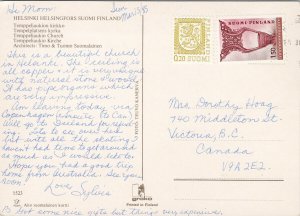 HELSINKI HELSINGFORS SUOMI FINLAND
Temppeliaukion kirkko
Tempelplatsens kyrka
Temppeliaukio Church
Temppeliaukio Kirche
Architects: Timo & Tuomo Suomalainen
Hi Mom Sun
This is a beautiful church
in Helsinki. The ceiling is
all copper & it is very unusual
with natural stone & wood.
It has pipe organs which
are very impressive.
Am leaving today via
Copenhagen, to
Will go to Zealand for
Lots to see out here
and not all the
haven't had time to
as much as I would like to.
Hope you had a good trip
home from Australia. See you
soon!
Love Sylvia
Mrs. Dorothy Hoag
740 Middleton St.
Victoria, B.C.
Canada
V9A 2E2
SUOMI FINLAND
0,20 SUOMI FINLAND
1,90
5525
grako
Printed in Finland
Got some nice gifts but things very expensive.